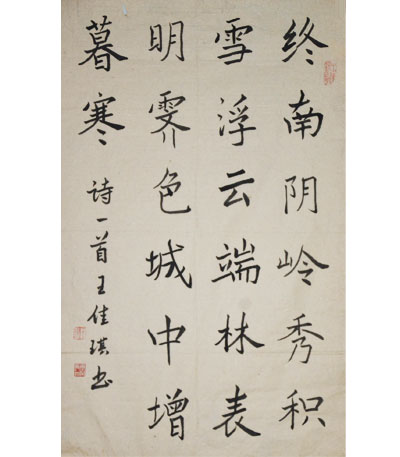 终南阴岭秀积
雪浮云端林表
明霁色城中增
暮寒
诗一首王佳琪书